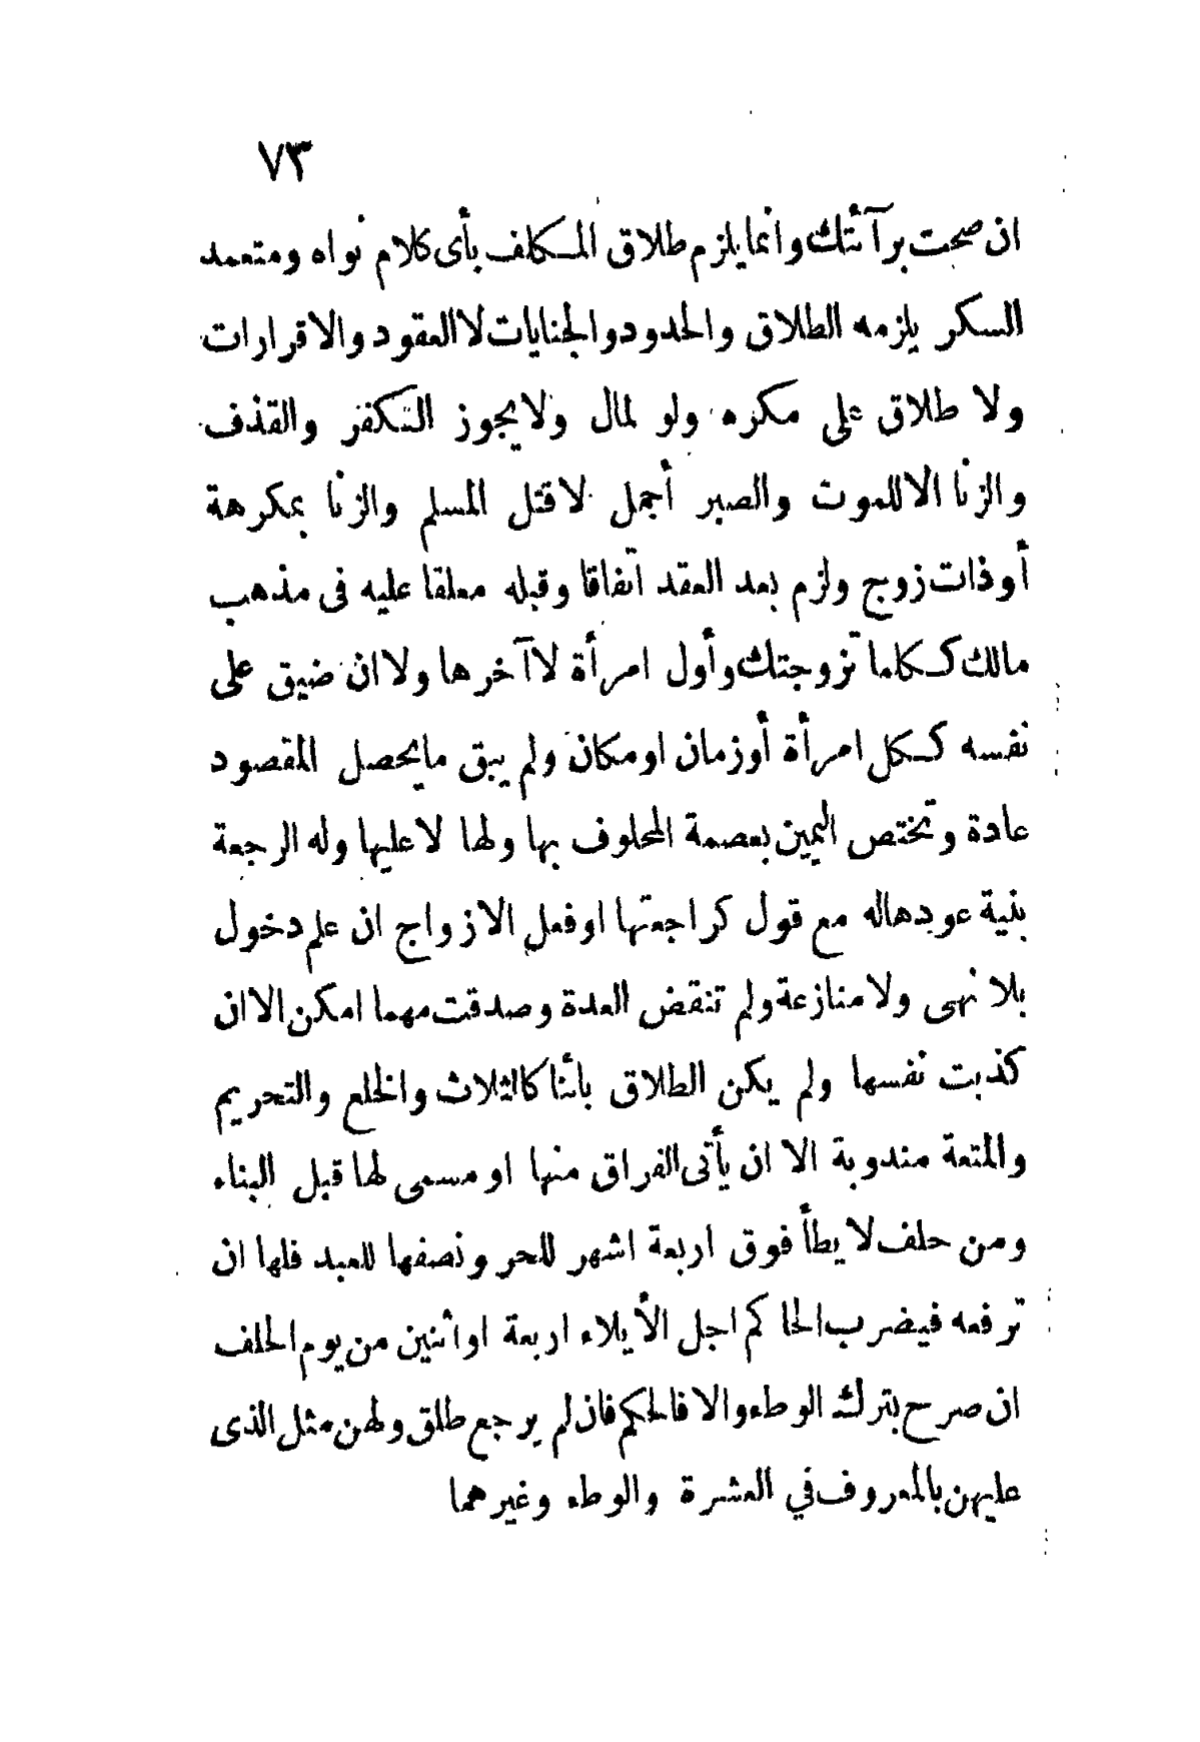 ٧٣
ان صحت برآئتك وانما يلزم طلاق المكلف بأى كلام نواه ومتعمد
السكر يلزمه الطلاق والحدود والجنايات لا العقود والاقرارات
ولا طلاق على مكره ولو لمال ولا يجوز التكفر والقذف
والزنا الا للموت والصبر أجمل لا قتل المسلم والزنا بمكرهة
أو ذات زوج ولزم بعد العقد اتفاقا وقبله معلقا عليه فى مذهب
مالك ككلما تزوجتك وأول امرأة لا آخرها ولا ان ضيق على
نفسه ككل امرأة أو زمان او مكان ولم يبق ما يحصل المقصود
عادة وتختص اليمين بعصمة المحلوف بها ولها لا عليها وله الرجعة
بنية عودها له مع قول كراجعتها او فعل الازواج ان علم دخول
بلا نهى ولا منازعة ولم تنقض العدة وصدقت مهما امكن الا ان
كذبت نفسها ولم يكن الطلاق بائنا كالثلاث والخلع والتحريم
والمتعة مندوبة الا ان يأتى الفراق منها او مسمى لها قبل البناء
ومن حلف لا يطأ فوق اربعة اشهر للحر ونصفها للعبد فلها ان
ترفعه فيضرب الحاكم اجل الأيلاء اربعة او اثنين من يوم الحلف
ان صرح بترك الوطء والا فالحكم فان لم يرجع طلق ولهن مثل الذى
عليهن بالمعروف في العشرة والوطء وغيرهما